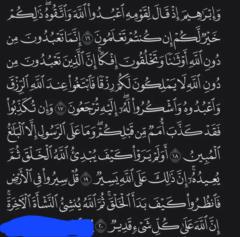 وَإِبْرَٰهِيمَ إِذْ قَالَ لِقَوْمِهِ ٱعْبُدُوا۟ ٱللَّهَ وَٱتَّقُوهُ ذَٰلِكُمْ
خَيْرٌ لَّكُمْ إِن كُنتُمْ تَعْلَمُونَ ١٦ إِنَّمَا تَعْبُدُونَ مِن
دُونِ ٱللَّهِ أَوْثَٰنًا وَتَخْلُقُونَ إِفْكًا إِنَّ ٱلَّذِينَ تَعْبُدُونَ مِن
دُونِ ٱللَّهِ لَا يَمْلِكُونَ لَكُمْ رِزْقًا فَٱبْتَغُوا۟ عِندَ ٱللَّهِ ٱلرِّزْقَ
وَٱعْبُدُوهُ وَٱشْكُرُوا۟ لَهُۥٓ إِلَيْهِ تُرْجَعُونَ ١٧ وَإِن تُكَذِّبُوا۟
فَقَدْ كَذَّبَ أُمَمٌ مِّن قَبْلِكُمْ وَمَا عَلَى ٱلرَّسُولِ إِلَّا ٱلْبَلَٰغُ
ٱلْمُبِينُ ١٨ أَوَلَمْ يَرَوْا۟ كَيْفَ يُبْدِئُ ٱللَّهُ ٱلْخَلْقَ ثُمَّ
يُعِيدُهُۥٓ إِنَّ ذَٰلِكَ عَلَى ٱللَّهِ يَسِيرٌ ١٩ قُلْ سِيرُوا۟ فِى ٱلْأَرْضِ
فَٱنظُرُوا۟ كَيْفَ بَدَأَ ٱلْخَلْقَ ثُمَّ ٱللَّهُ يُنشِئُ ٱلنَّشْأَةَ ٱلْءَاخِرَةَ
إِنَّ ٱللَّهَ عَلَىٰ كُلِّ شَىْءٍ قَدِيرٌ ٢٠